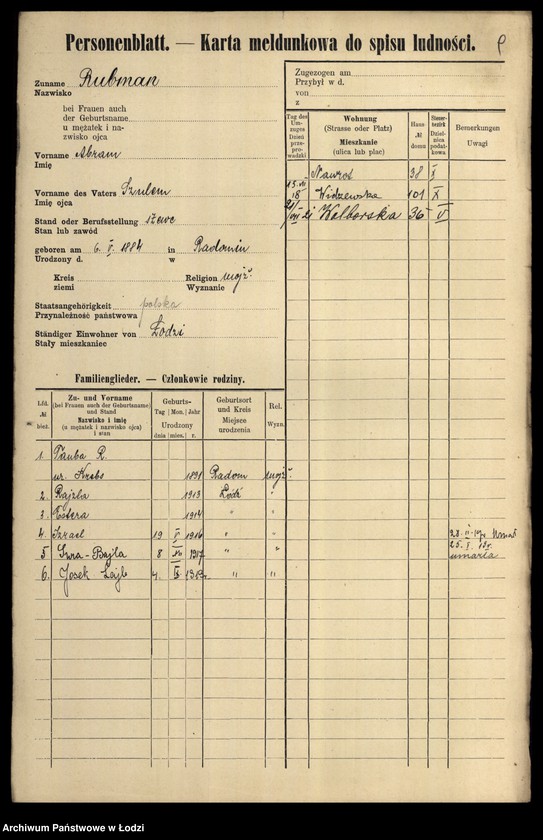 Personenblatt. — Karta meldunkowa do spisu ludności.
Zuname Rubman
Nazwisko
bei Frauen auch
der Geburtsname
u mężatek i na-
zwisko ojca
Vorname Abram
Imię
Vorname des Vaters Szulem
Imię ojca
Stand oder Berufsstellung szewc
Stan lub zawód
geboren am 6. V. 1884 in Radomiu
Urodzony d. w
Kreis Religion mojż.
ziemi Wyznanie
Staatsangehörigkeit polska
Przynależność państwowa
Ständiger Einwohner von Łodzi
Stały mieszkaniec
Zugezogen am
Przybył w d.
von
z
Tag des Um-zuges Dzień prze-prowadzki
Wohnung
(Strasse oder Platz)
Mieszkanie
(ulica lub plac)
Haus-
№
domu
Steuer-
bezirk
Dziel-
nica po-
datkowa
Bemerkungen
Uwagi
Nawrot 38 X
15. VII 18 Widzewska 101 X
21 Wolborska 36 V
Familienglieder. — Członkowie rodziny.
Lfd.
№
bież.
Zu- und Vorname
(bei Frauen auch der Geburtsname)
und Stand
Nazwisko i imię
(u mężatek i nazwisko ojca)
i stan
Geburts-
Tag Mon. Jahr
Urodzony
dnia mies. r.
Geburtsort
und Kreis
Miejsce
urodzenia
Rel.
Wyzn.
1. Tauba R.
ur. Krebs 1891 Radom mojż.
2. Rajzla 1913 Łódź "
3. Estera 1914 " "
4. Izrael 19 V 1916 " "
5 Sura-Bajla 8 1917 " "
umarła
6. Josek Lajb " "
Archiwum Państwowe w Łodzi